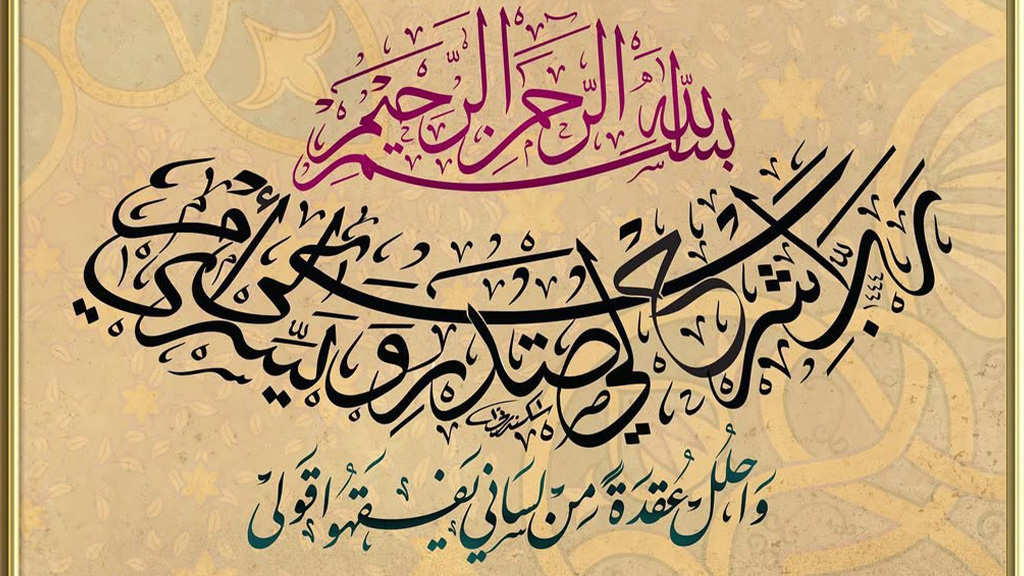 بسم الله الرحمن الرحيم
رب اشرح لي صدري ويسر لي أمري
١٤٤٤
وَاحْلُلْ عُقْدَةً مِنْ لِسَانِي يَفْقَهُوا قَوْلِي